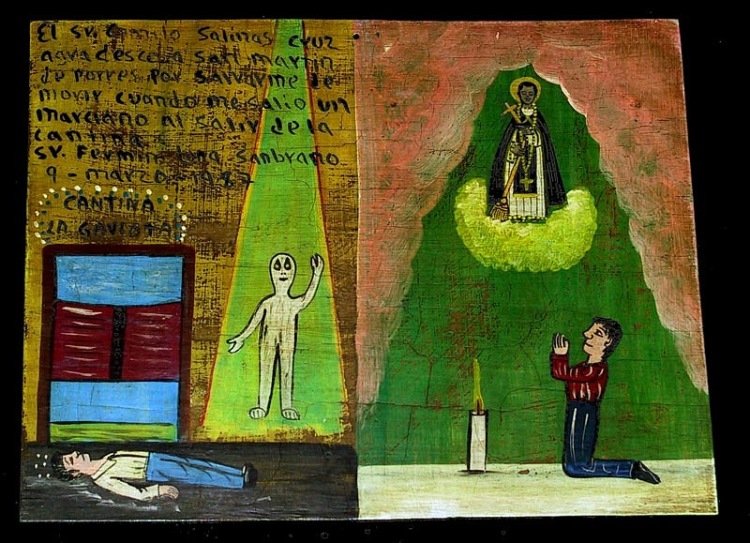 El sr. Salinas cruz
agradesce a martin
de porres por salvarme de
morir cuando me salio un
marciano al salir de la
cantina.
sr. Fermin Sanbrano
9 - marzo - 1987
CANTINA
LA GAVIOTA